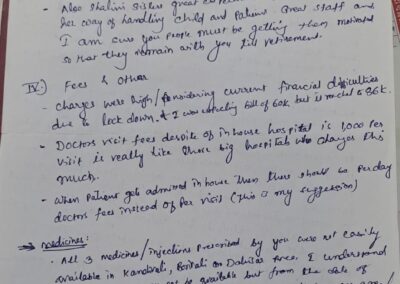 - Also Shalini Sisters great
her way of handling Child and Patient. Great staff and
I am sure you people must be getting them motivated
so that they remain with you till retirement.
IV) Fees & Other
- Charges were high/ Considering current financial difficulties
due to lock down. I was expecting bill of 60K but it reached to 86K.
- Doctors visit fees despite of in house hospital is 1,000 per
visit is really like those big hospitals who charges this
much.
- When Patient gets admitted in house then there should be Per day
doctors fees instead of Per visit (This is my suggestion)
→ medicines:
- All 3 medicines/injections Prescribed by you were not easily
available in Kandivali, Borivali or Dahisar Area. I understand
to be available but from the date of